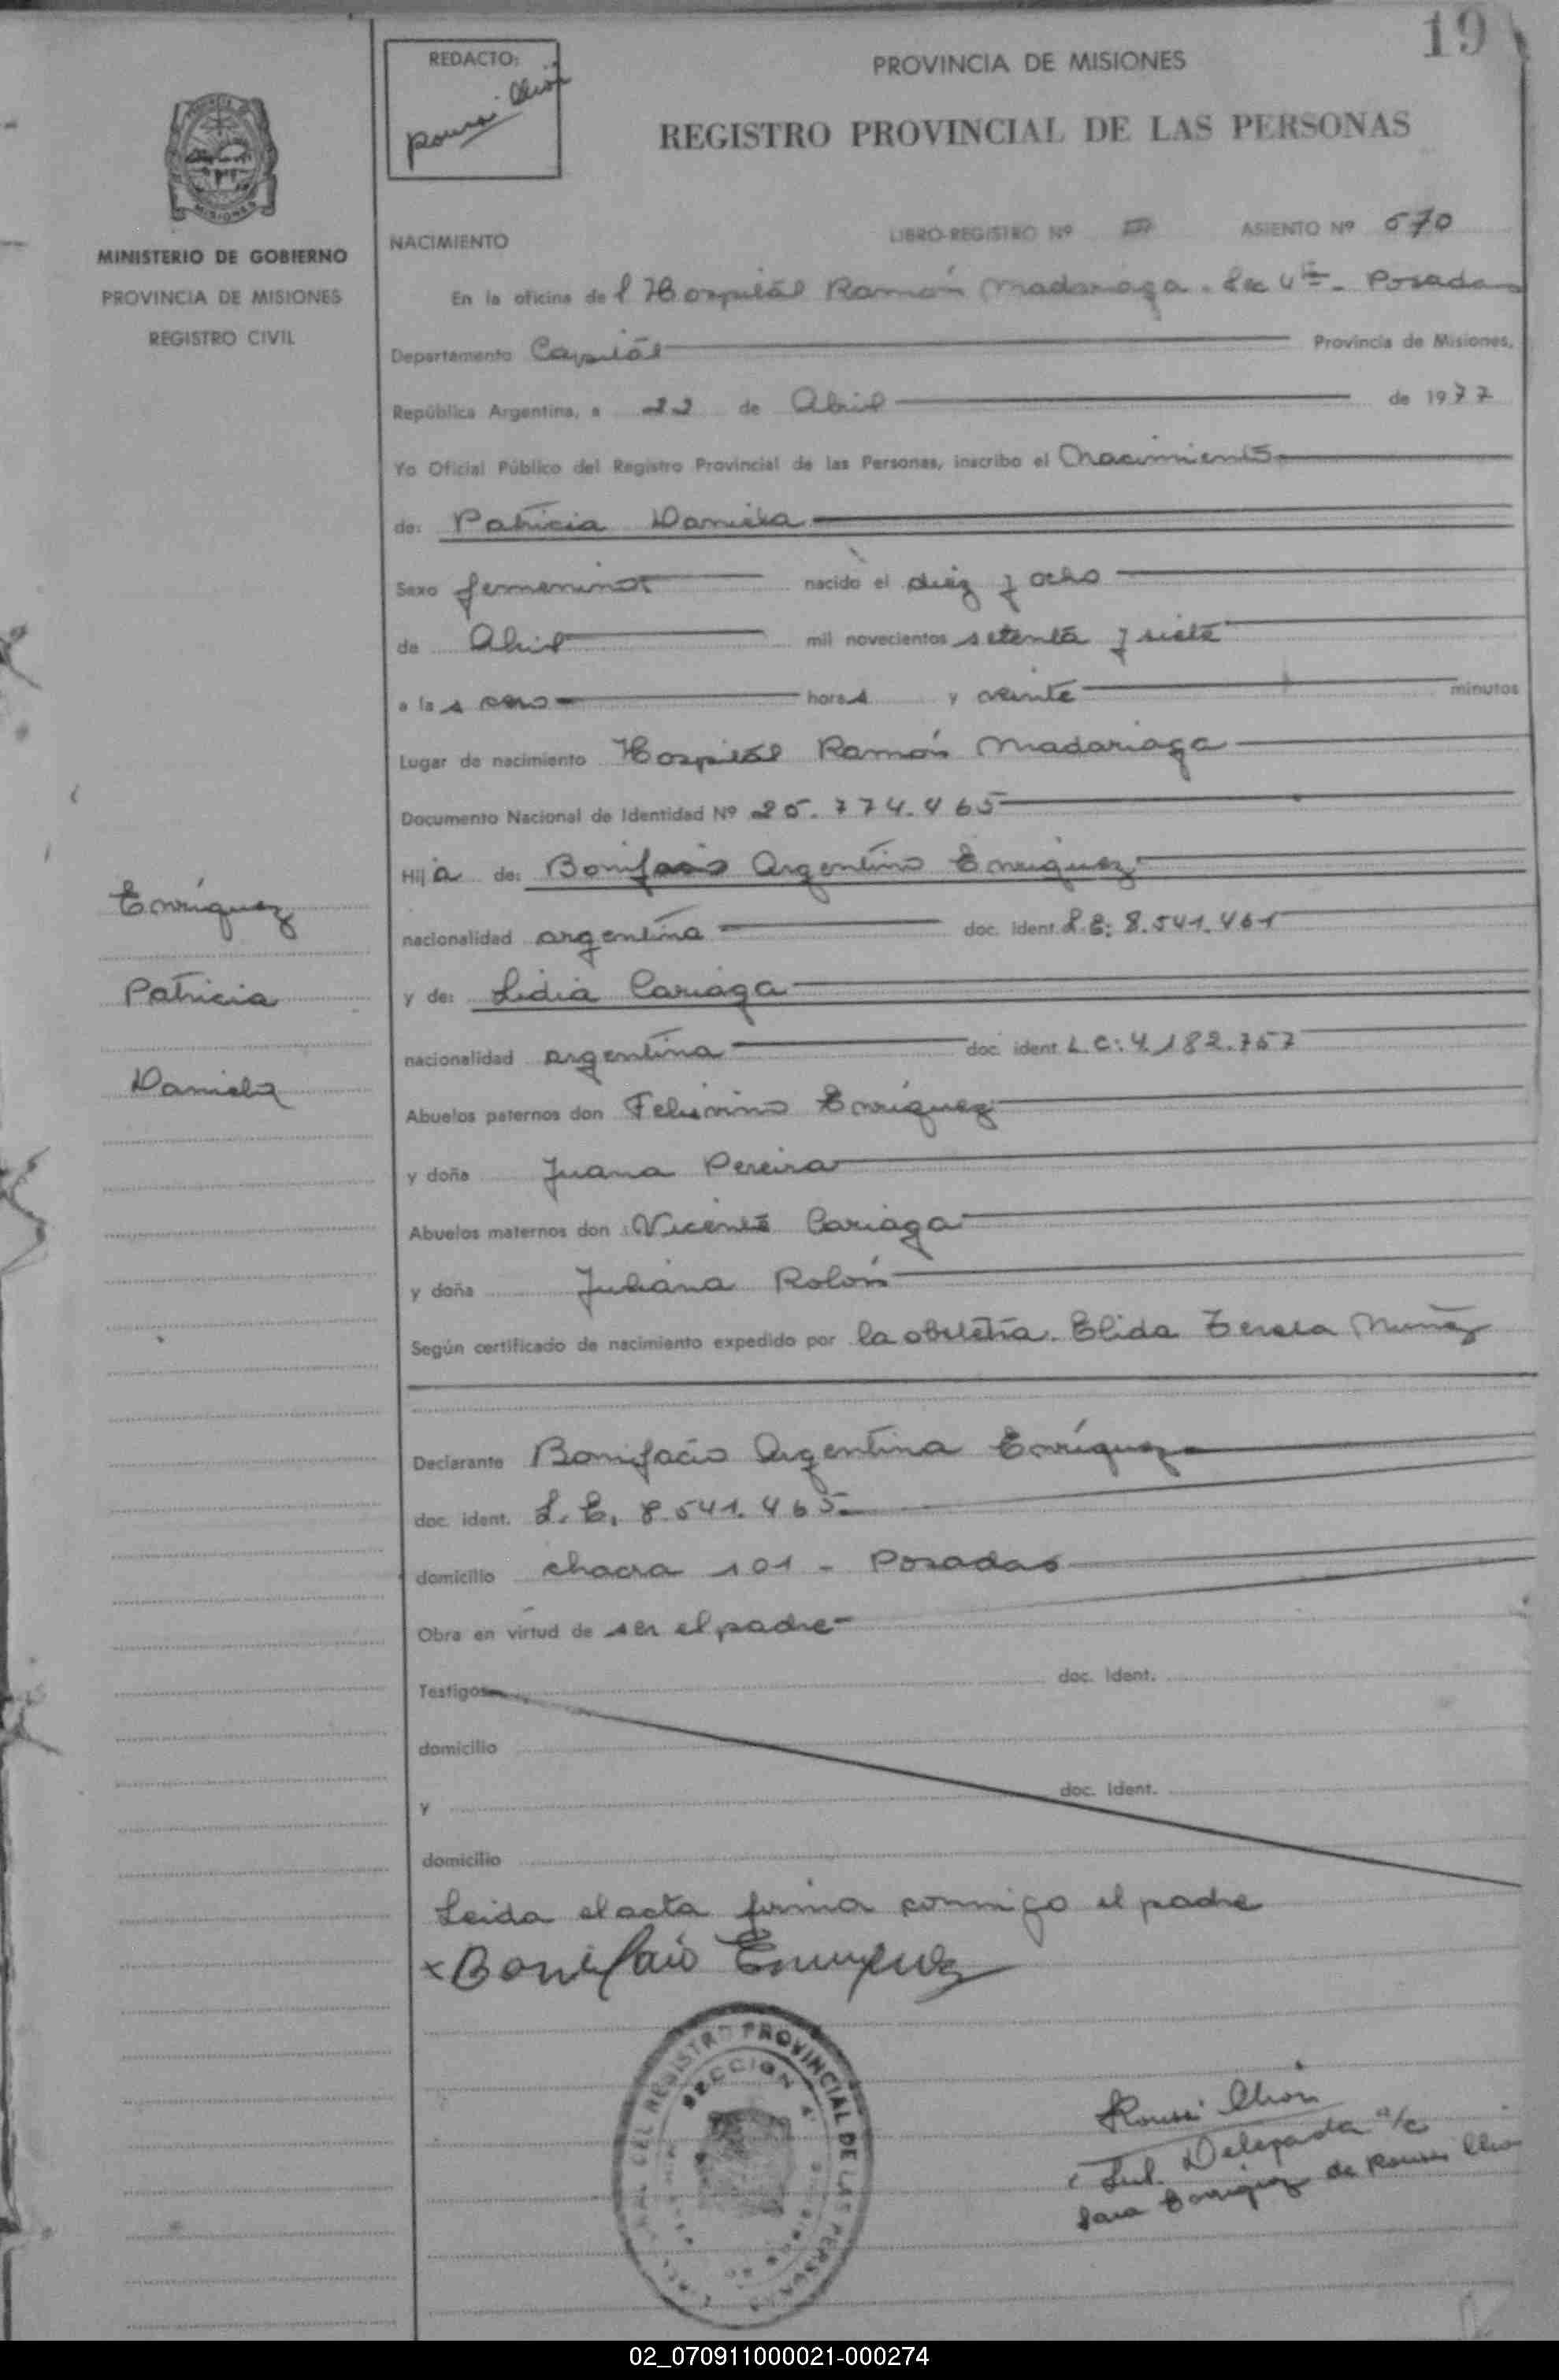 19
REDACTO:
PROVINCIA DE MISIONES
REGISTRO PROVINCIAL DE LAS PERSONAS
MISIONES
MINISTERIO DE GOBIERNO
PROVINCIA DE MISIONES
REGISTRO CIVIL
NACIMIENTO LIBRO-REGISTRO Nº III ASIENTO Nº 670
En la oficina del Hospital Ramón Madariaga. Sec 4ta - Posadas
Departamento Capital Provincia de Misiones,
República Argentina, a 22 de Abril de 1977
Yo Oficial Público del Registro Provincial de las Personas, inscribo el Nacimiento
de: Patricia Daniela
Sexo femenino nacido el diez y ocho
de Abril mil novecientos setenta y siete
a las cero horas y veinte minutos
Lugar de nacimiento Hospital Ramón Madariaga
Documento Nacional de Identidad Nº 25.774.465
Hija de: Bonifacio Argentino Enriquez
nacionalidad argentina doc. ident. L.E: 8.541.461
y de: Lidia Cariaga
nacionalidad argentina doc. ident. L.C: 4.182.757
Abuelos paternos don Enríquez
y doña Juana Pereira
Abuelos maternos don Vicente Cariaga
y doña Juliana Rolón
Según certificado de nacimiento expedido por la obstetra. Elida Teresa Muñoz
Enríquez
Patricia
Daniela
Declarante Bonifacio Argentina Enríquez
doc. ident. L.E. 8.541.465
domicilio chacra 101 - Posadas
Obra en virtud de ser el padre
Testigos doc. Ident.
domicilio
y doc. Ident.
domicilio
Leida el acta firma conmigo el padre
x Bonifacio Enriquez
DEL REGISTRO PROVINCIAL DE LAS PERSONAS
SECCION 4ª
Delegada a/c
Sara Enriquez de
02_070911000021-000274